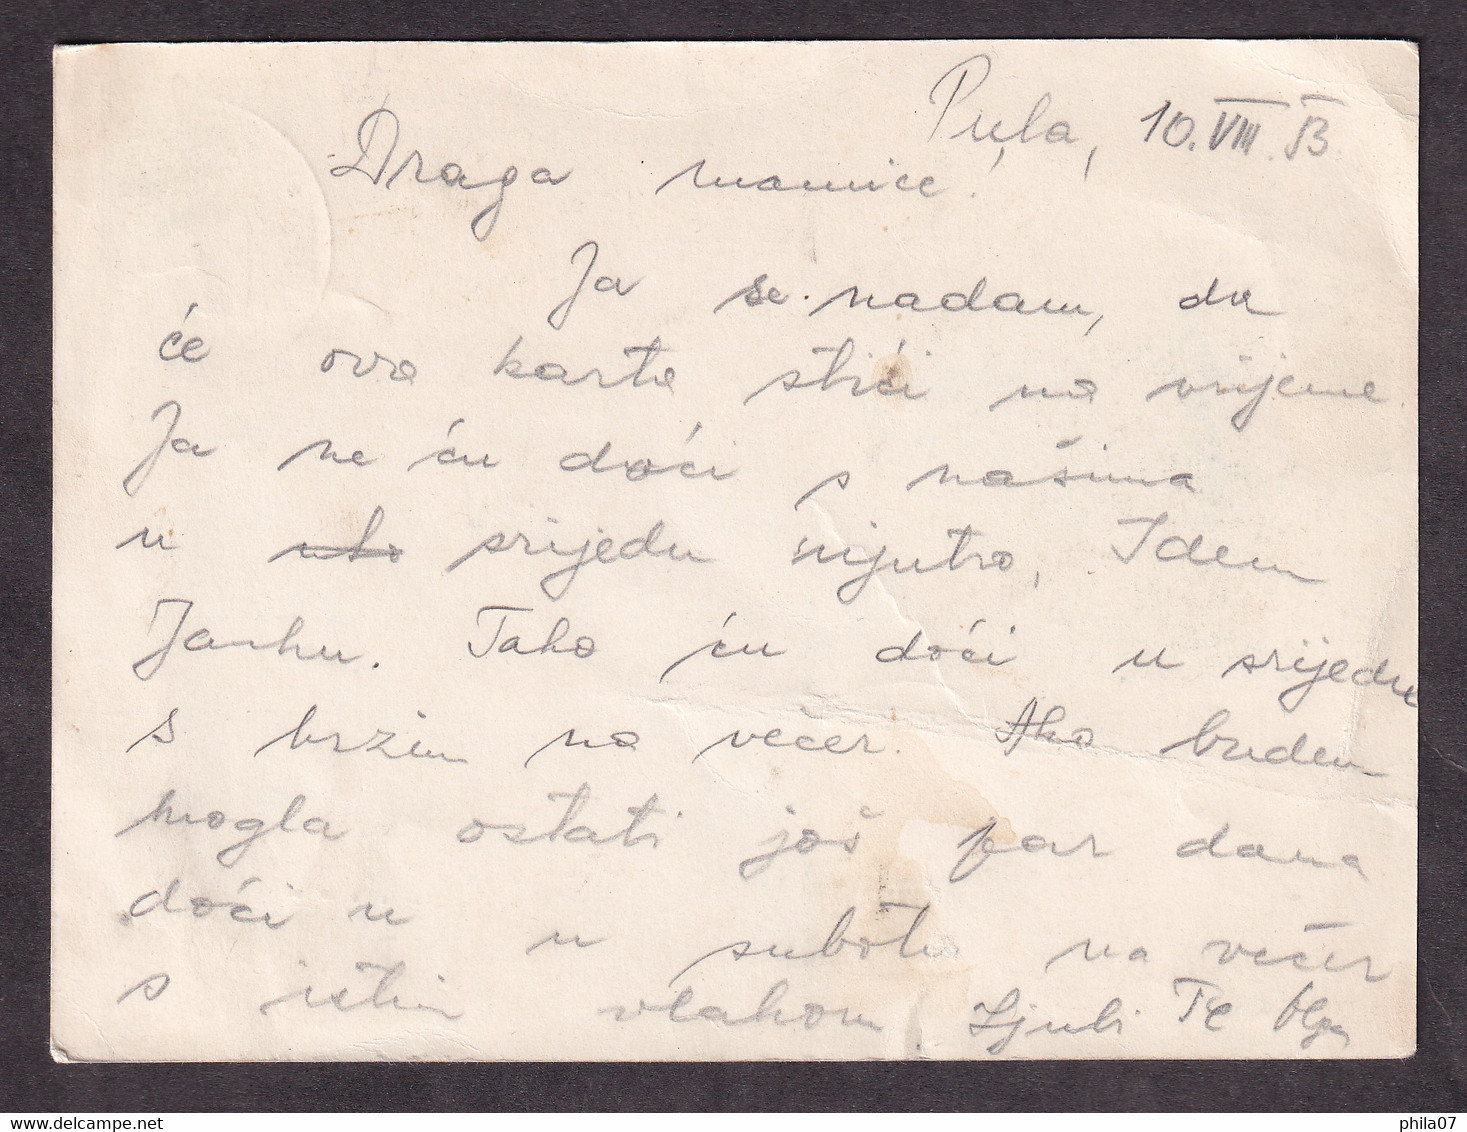 Pula, 10. VIII. 53
Draga mamice!
Ja se nadam, da
će ova karta stići na vrijeme.
Ja ne ću doći s našima
u srijedu ujutro, Idem
Janku. Tako ću doći u srijedu
s brzim na večer. Ako budem
mogla ostati još par dana
doći ću
u subotu na večer
s istim vlakom. Ljubi Te Olga
phila07